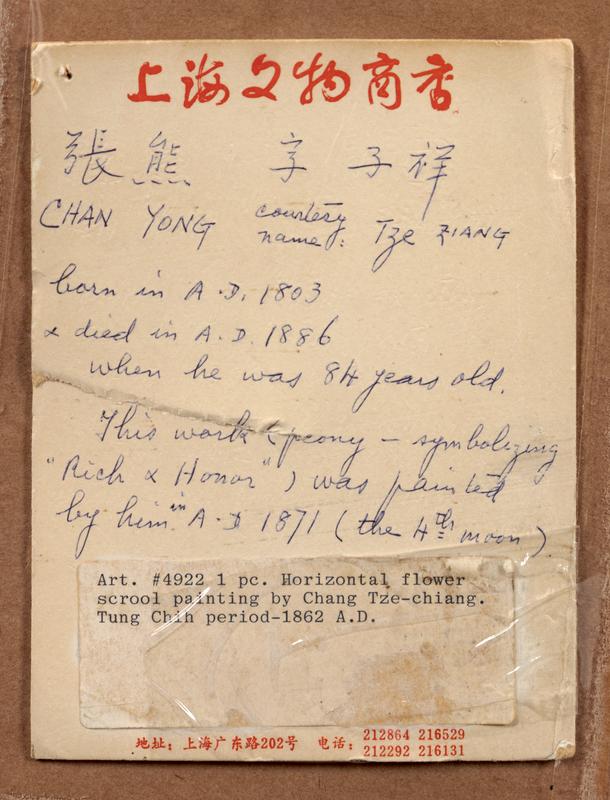 上海文物商店
張熊 字 子祥
CHAN YONG courtesy name: Tze ZIANG
born in A.D. 1803
& died in A.D. 1886
when he was 84 years old.
This work (peony - symbolizing
"Rich & Honor") was painted
by him in A.D 1871 (the 4th moon).
Art. #4922 1 pc. Horizontal flower
scrool painting by Chang Tze-chiang.
Tung Chih period-1862 A.D.
地址：上海广东路202号 电话：212864 216529
212292 216131